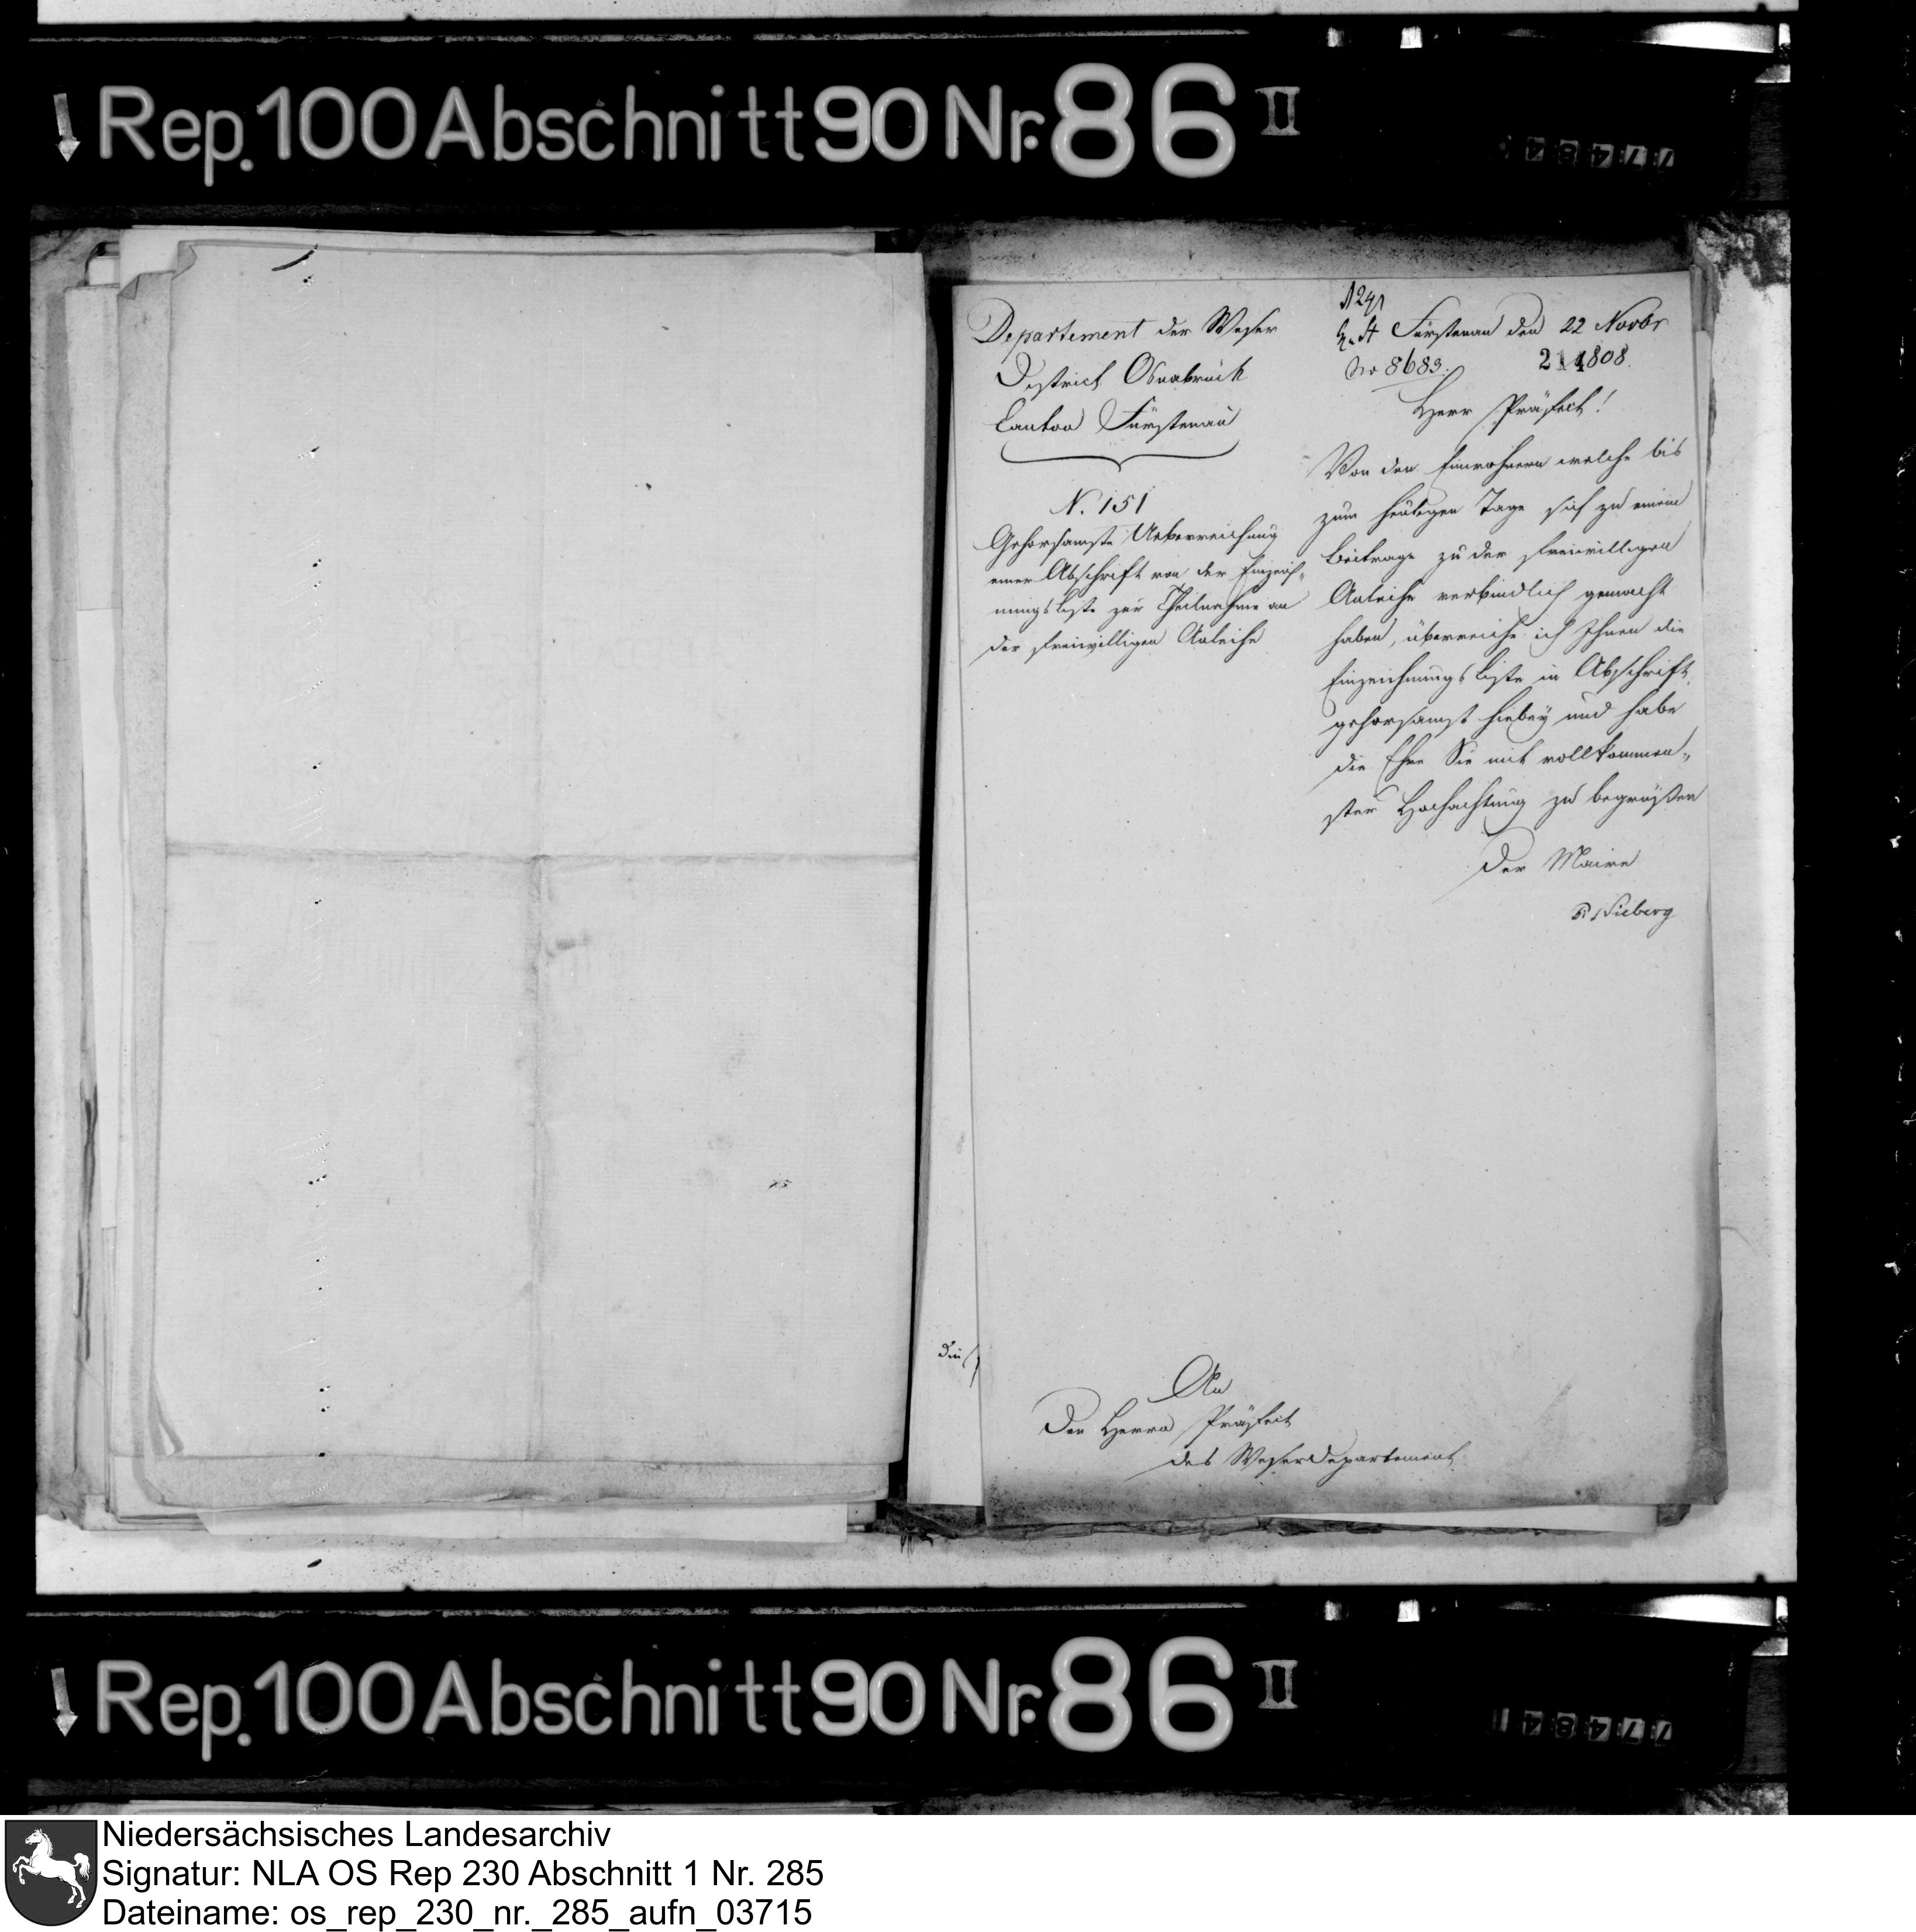 Rep. 100 Abschnitt 90 Nr. 86 II
77484
Departement der Weser
District Osnabrück
Canton Fürstenau
N. 151
Gehorsamste Ueberreichung
einer Abschrift von der Einzeich„
nungs liste zur Theilnahme an
der freiwilligen Anleihe
Fürstenau den 22 Novbr
No 8683. 1808.
214
Herr Präfect!
Von den Einwohnern welche bis
zum heutigen Tage sich zu einem
Beitrage zu der freiwilligen
Anleihe verbindlich gemacht
haben, überreiche ich Ihnen die
Einzeichnungs liste in Abschrift
gehorsamst hiebey und habe
die Ehre Sie mit vollkommen„
ster Hochachtung zu begrüßen
Der Maire
Nieberg
die
An
Den Herrn Präfect
des Weserdepartement
Rep. 100 Abschnitt 90 Nr. 86 II
77484
Niedersächsisches Landesarchiv
Signatur: NLA OS Rep 230 Abschnitt 1 Nr. 285
Dateiname: os_rep_230_nr._285_aufn_03715